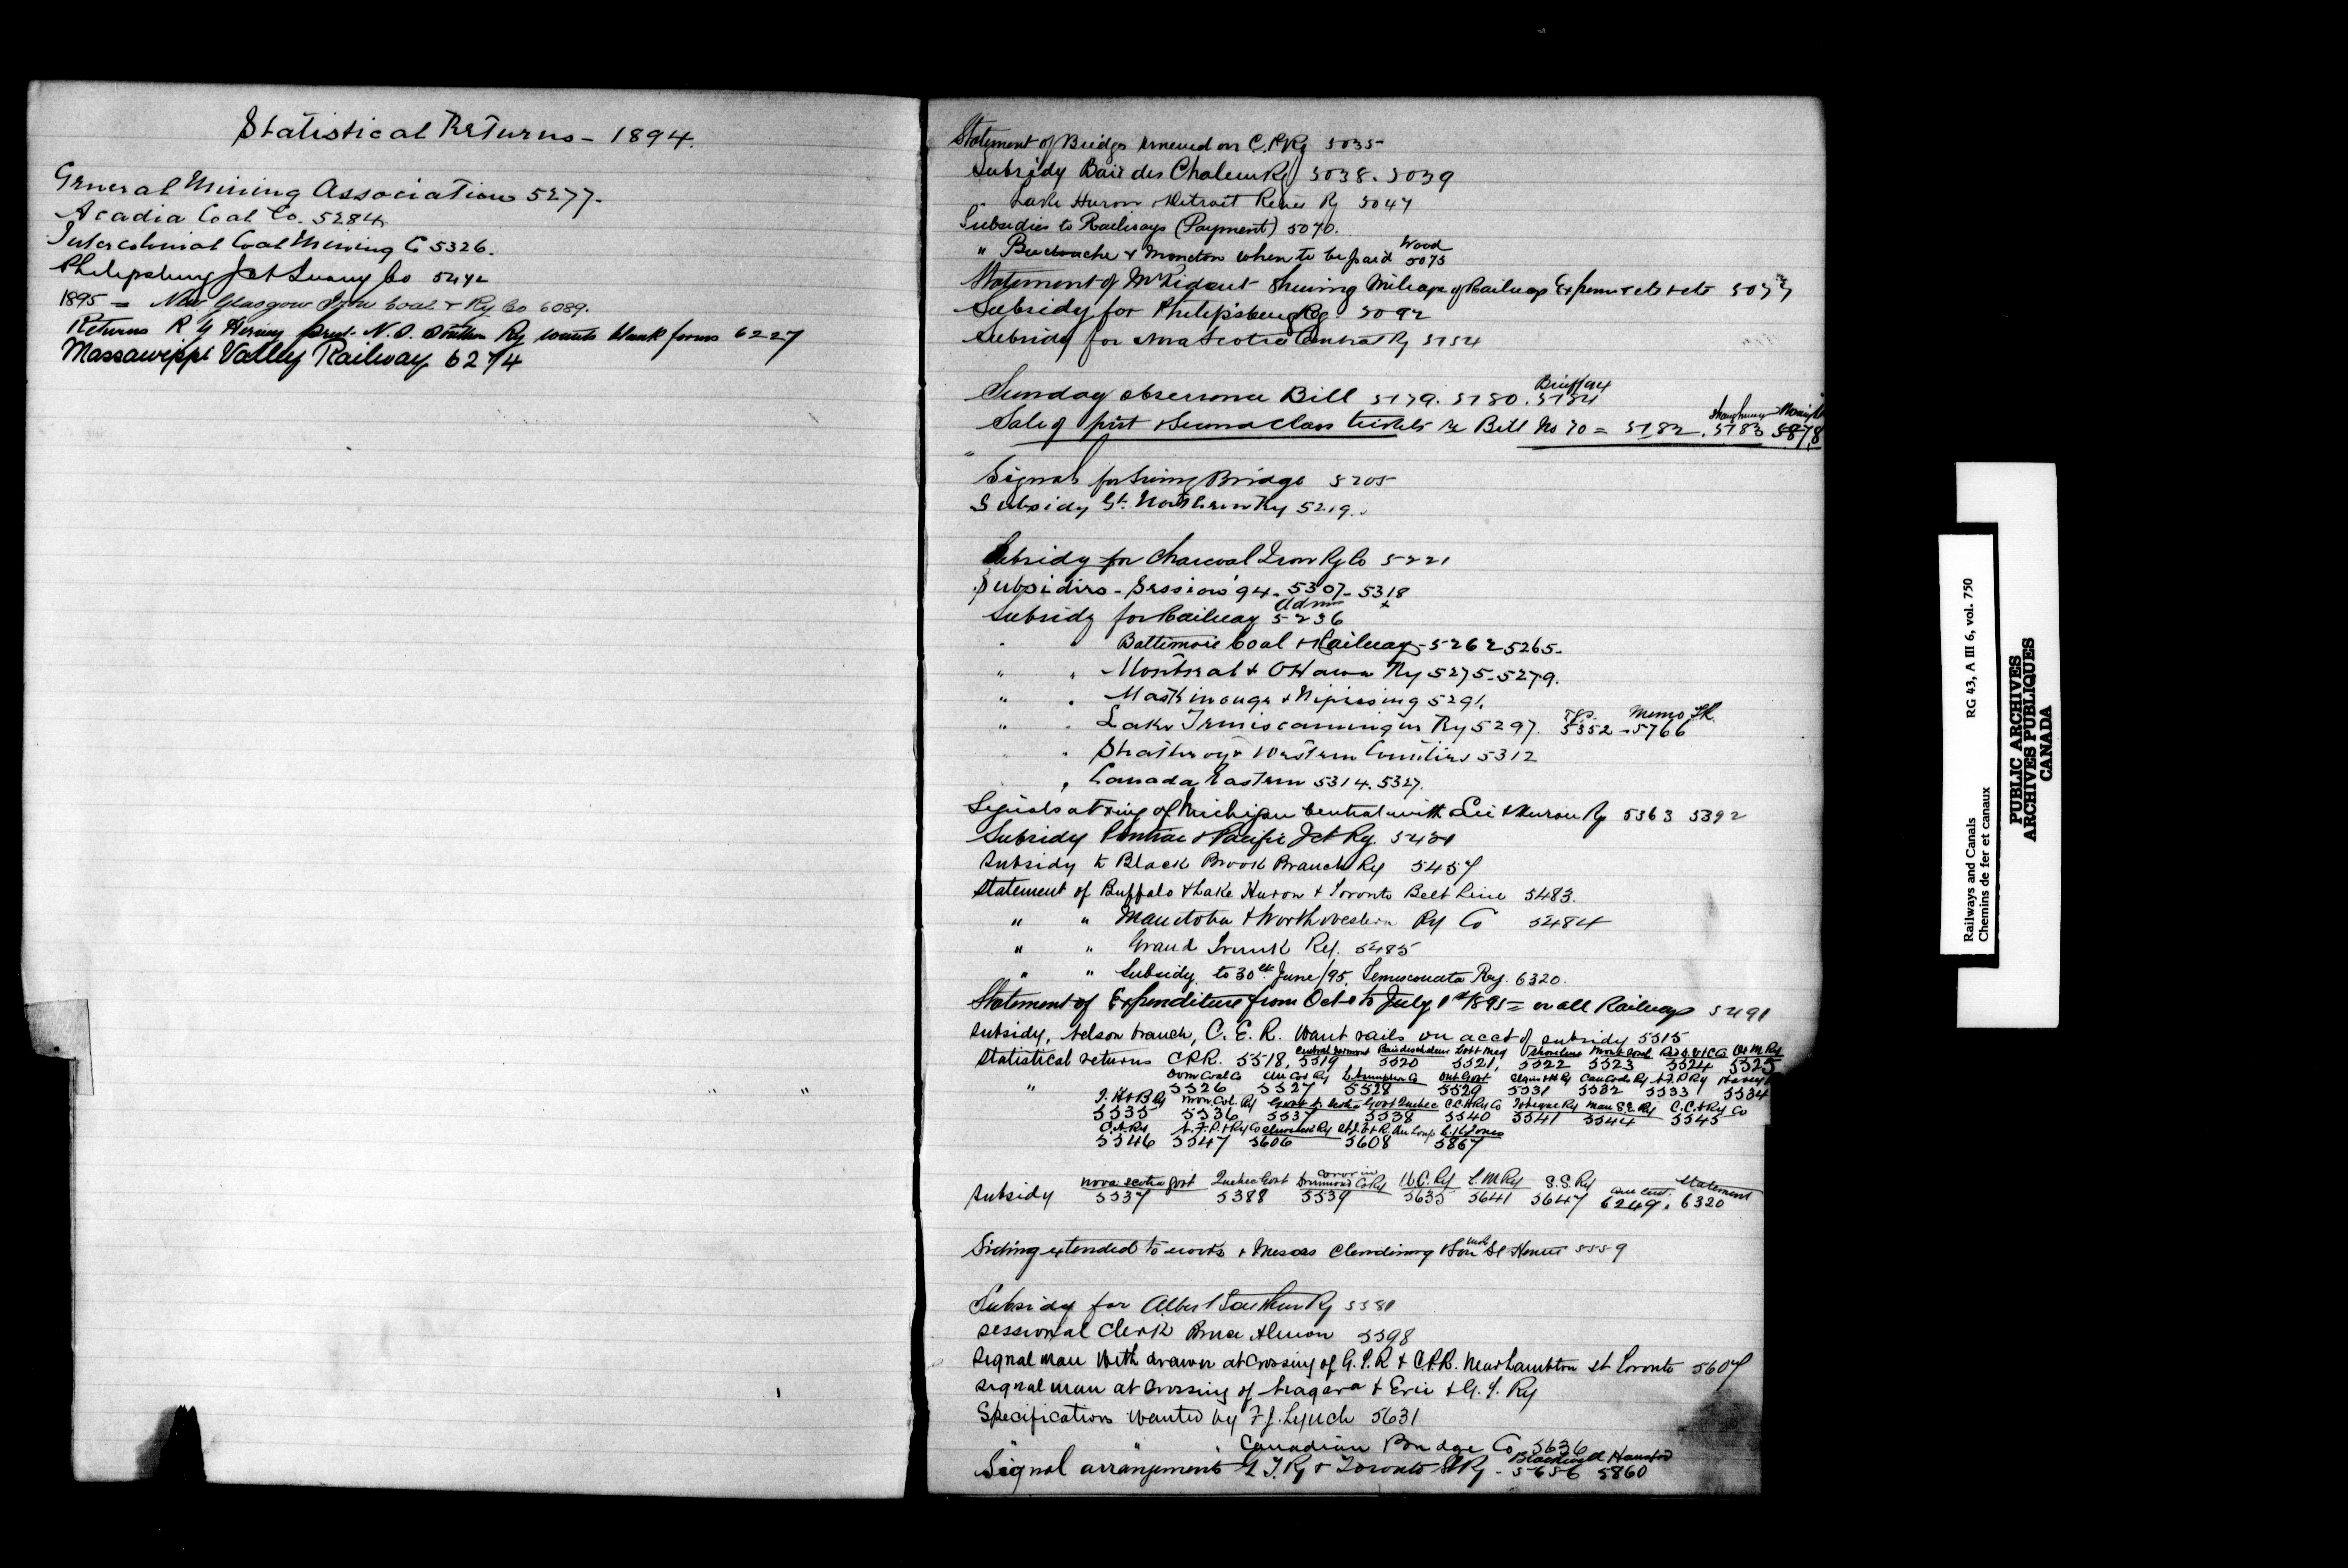 Statistical Returns - 1894.
General Mining Association 5277.
Acadia Coal Co. 5284
Intercolonial Coal Mining Co 5326.
Philipsburg Jct Quarry Co 5442
1895 = New Glasgow Iron Coal & Ry Co 6089.
Returns R G Hervey prest. N.S. Southern Ry wants blank forms 6227
Massawippi Valley Railway 6274
Statement of Bridges renewed on C.P.Ry 5035
Subsidy Baie des Chaleur Ry 5038. 5039
" Lake Huron & Detroit River Ry 5047
Subsidies to Railways (Payment) 5070.
" Buctouche & Moncton when to be paid Wood 5075
Statement of Mr Ridout shewing Mileage of Railway Expenses etc etc
Subsidy for Philipsburg Ry. 5092
Subsidy for Nova Scotia Central Ry 5154
Sunday observance Bill 5179. 5180. 5184
Sale of first & second class tickets re Bill No 70 = 5182. Shaughnessy 5183 5878
Signals for Swing Bridge 5205
Subsidy Gt. Northern Ry 5219.
Subsidy for Charcoal Iron Ry Co 5221
Subsidies - Session '94 - 5307 - 5318
Subsidy for Railway 5236
" " Baltimore Coal & Railway - 5262 5265.
" " Montreal & Ottawa Ry 5275 - 5279.
" " Maskinonge & Nipissing 5291.
" " Lake Temiscamingue Ry 5297. 5352 - Memo 5766
" " Strathroy & Western Counties 5312
" Canada Eastern 5314. 5327.
Signals at Xing of Michigan Central with Erie & Huron Ry 5363 5392
Subsidy Pontiac & Pacific Jct Ry.
Subsidy to Black Brook Branch Ry 5457
Statement of Buffalo & Lake Huron & Toronto Belt Line 5483.
" " Manitoba & Northwestern Ry Co 5484
" " Grand Trunk Ry. 5485
" " Subsidy to 30th June/95, Temiscouata Ry. 6320.
Statement of Expenditure from Oct 1 to July 1st 1895 = on all Railways 5491
Subsidy, Nelson branch, C. E. R. Want rails on acct of subsidy 5515
Statistical returns C.P.R. 5518, Central Vermont 5519 Baie des Chaleur 5520 5521, 5522 Mont Coal 5523 5524 5525
" " Dom Coal Co 5526 5527 L'Assomption 5528 Ont Govt 5529 5531 5532 5533 Harvey 5534
T. H & B Ry 5535 5536 Govt N. Scotia 5537 Govt Quebec 5538 5540 Tobique Ry 5541 Man S.E. Ry 5544 5545
C.A. Ry 5546 5547 5606 5608 5867
Subsidy Nova Scotia Govt 5537 Quebec Govt 5388 Drummond Co Ry 5539 U.C. Ry 5635 L.M Ry 5641 S.S. Ry 5647 6249. Statement 6320
Siding extended to works of Messrs Clendinning & Son St Henri 5559
Subsidy for Albert Southern Ry 5581
Sessional Clerk Bruce Almon 5598
Signal man withdrawn at crossing of G.T.R & C.P.R. Near Lambton st Toronto 5607
Signal man at crossing of Niagara & Erie & G. T. Ry
Specifications wanted by F.J. Lynch 5631
" " " Canadian Bridge Co 5636
Signal arrangements G T. Ry & Toronto St Ry - Blackwell 5656 5860
Railways and Canals RG 43, A III 6, vol. 750
Chemins de fer et canaux
PUBLIC ARCHIVES
ARCHIVES PUBLIQUES
CANADA